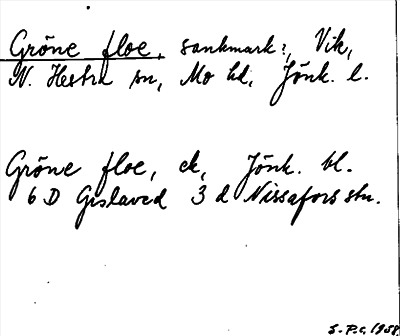 Gröne floe, sankmark:, Vik,
N. Hestra sn, Mo hd, Jönk. l.
Gröne floe, ek, Jönk. bl.
6 D Gislaved 3 d Nissafors stn.
S.P.c, 1958